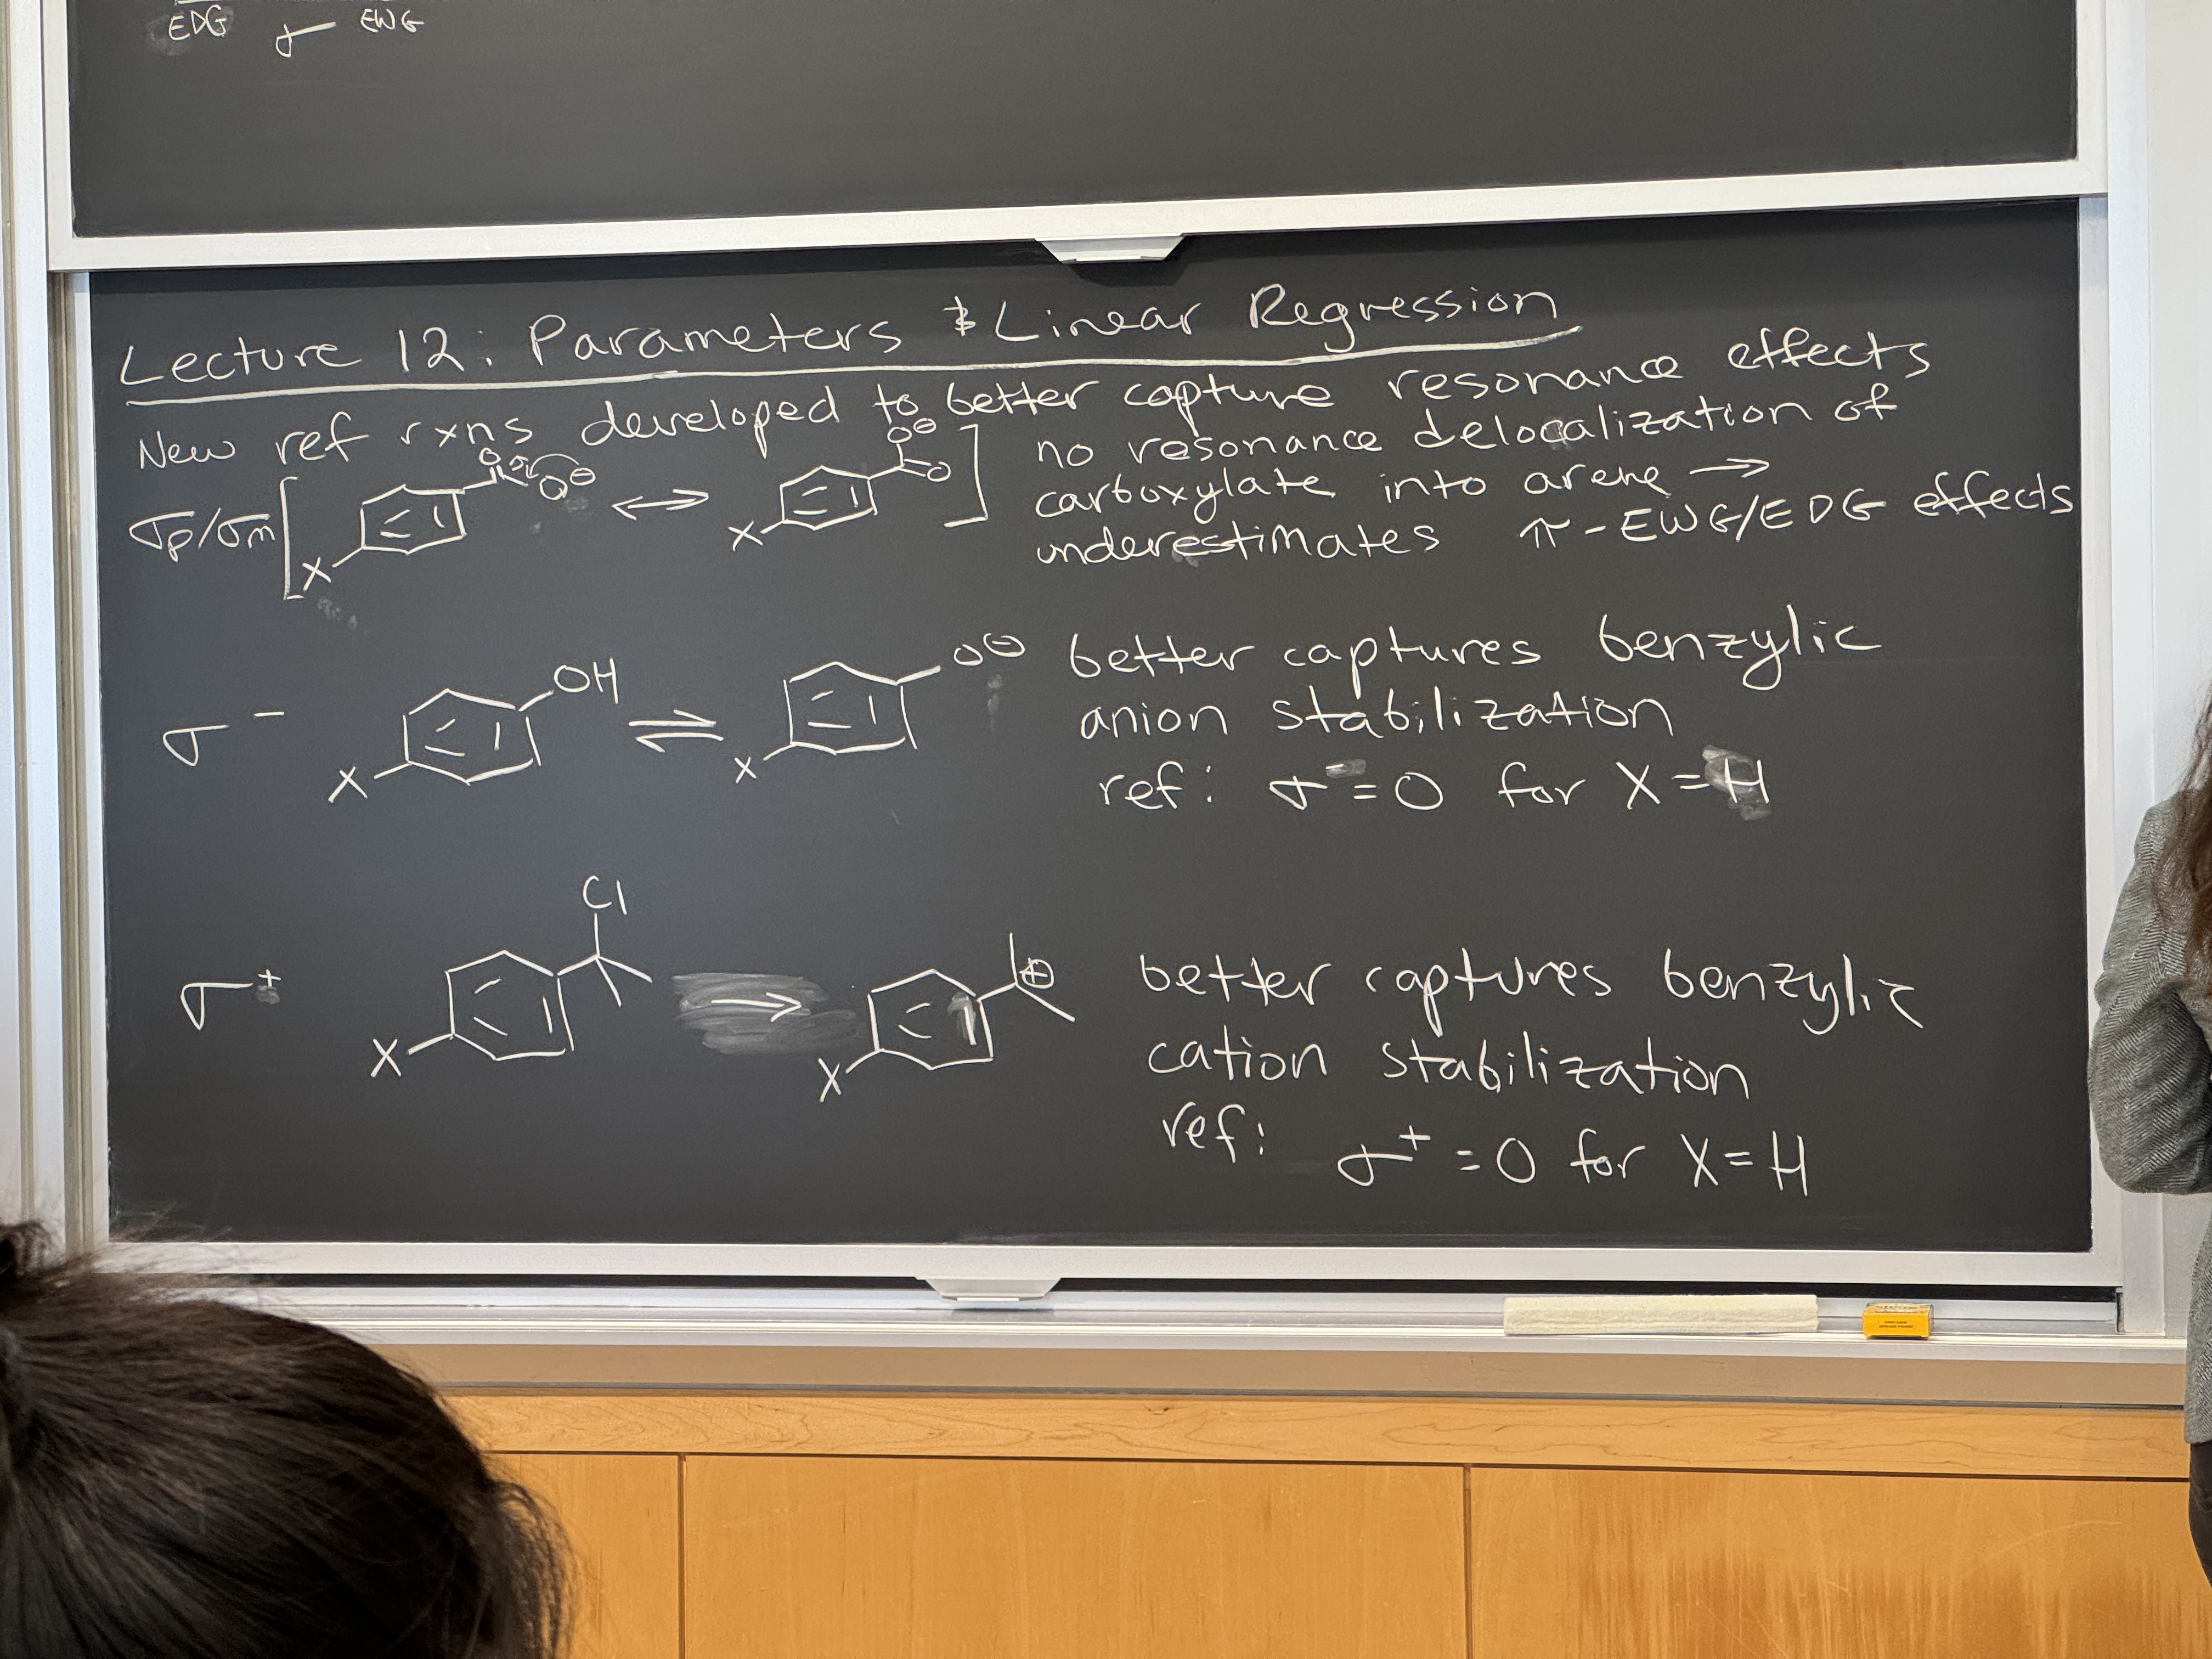 EDG σ EWG
Lecture 12: Parameters & Linear Regression
New ref rxns developed to better capture resonance effects
σp/σm [ X O O⊖ ↔ X O⊖ O ] no resonance delocalization of
carboxylate into arene →
underestimates π-EWG/EDG effects
σ⁻ X OH ⇌ X O⊖ better captures benzylic
anion stabilization
ref: σ⁻ = 0 for X = H
σ⁺ X Cl → X ⊕ better captures benzylic
cation stabilization
ref: σ⁺ = 0 for X = H